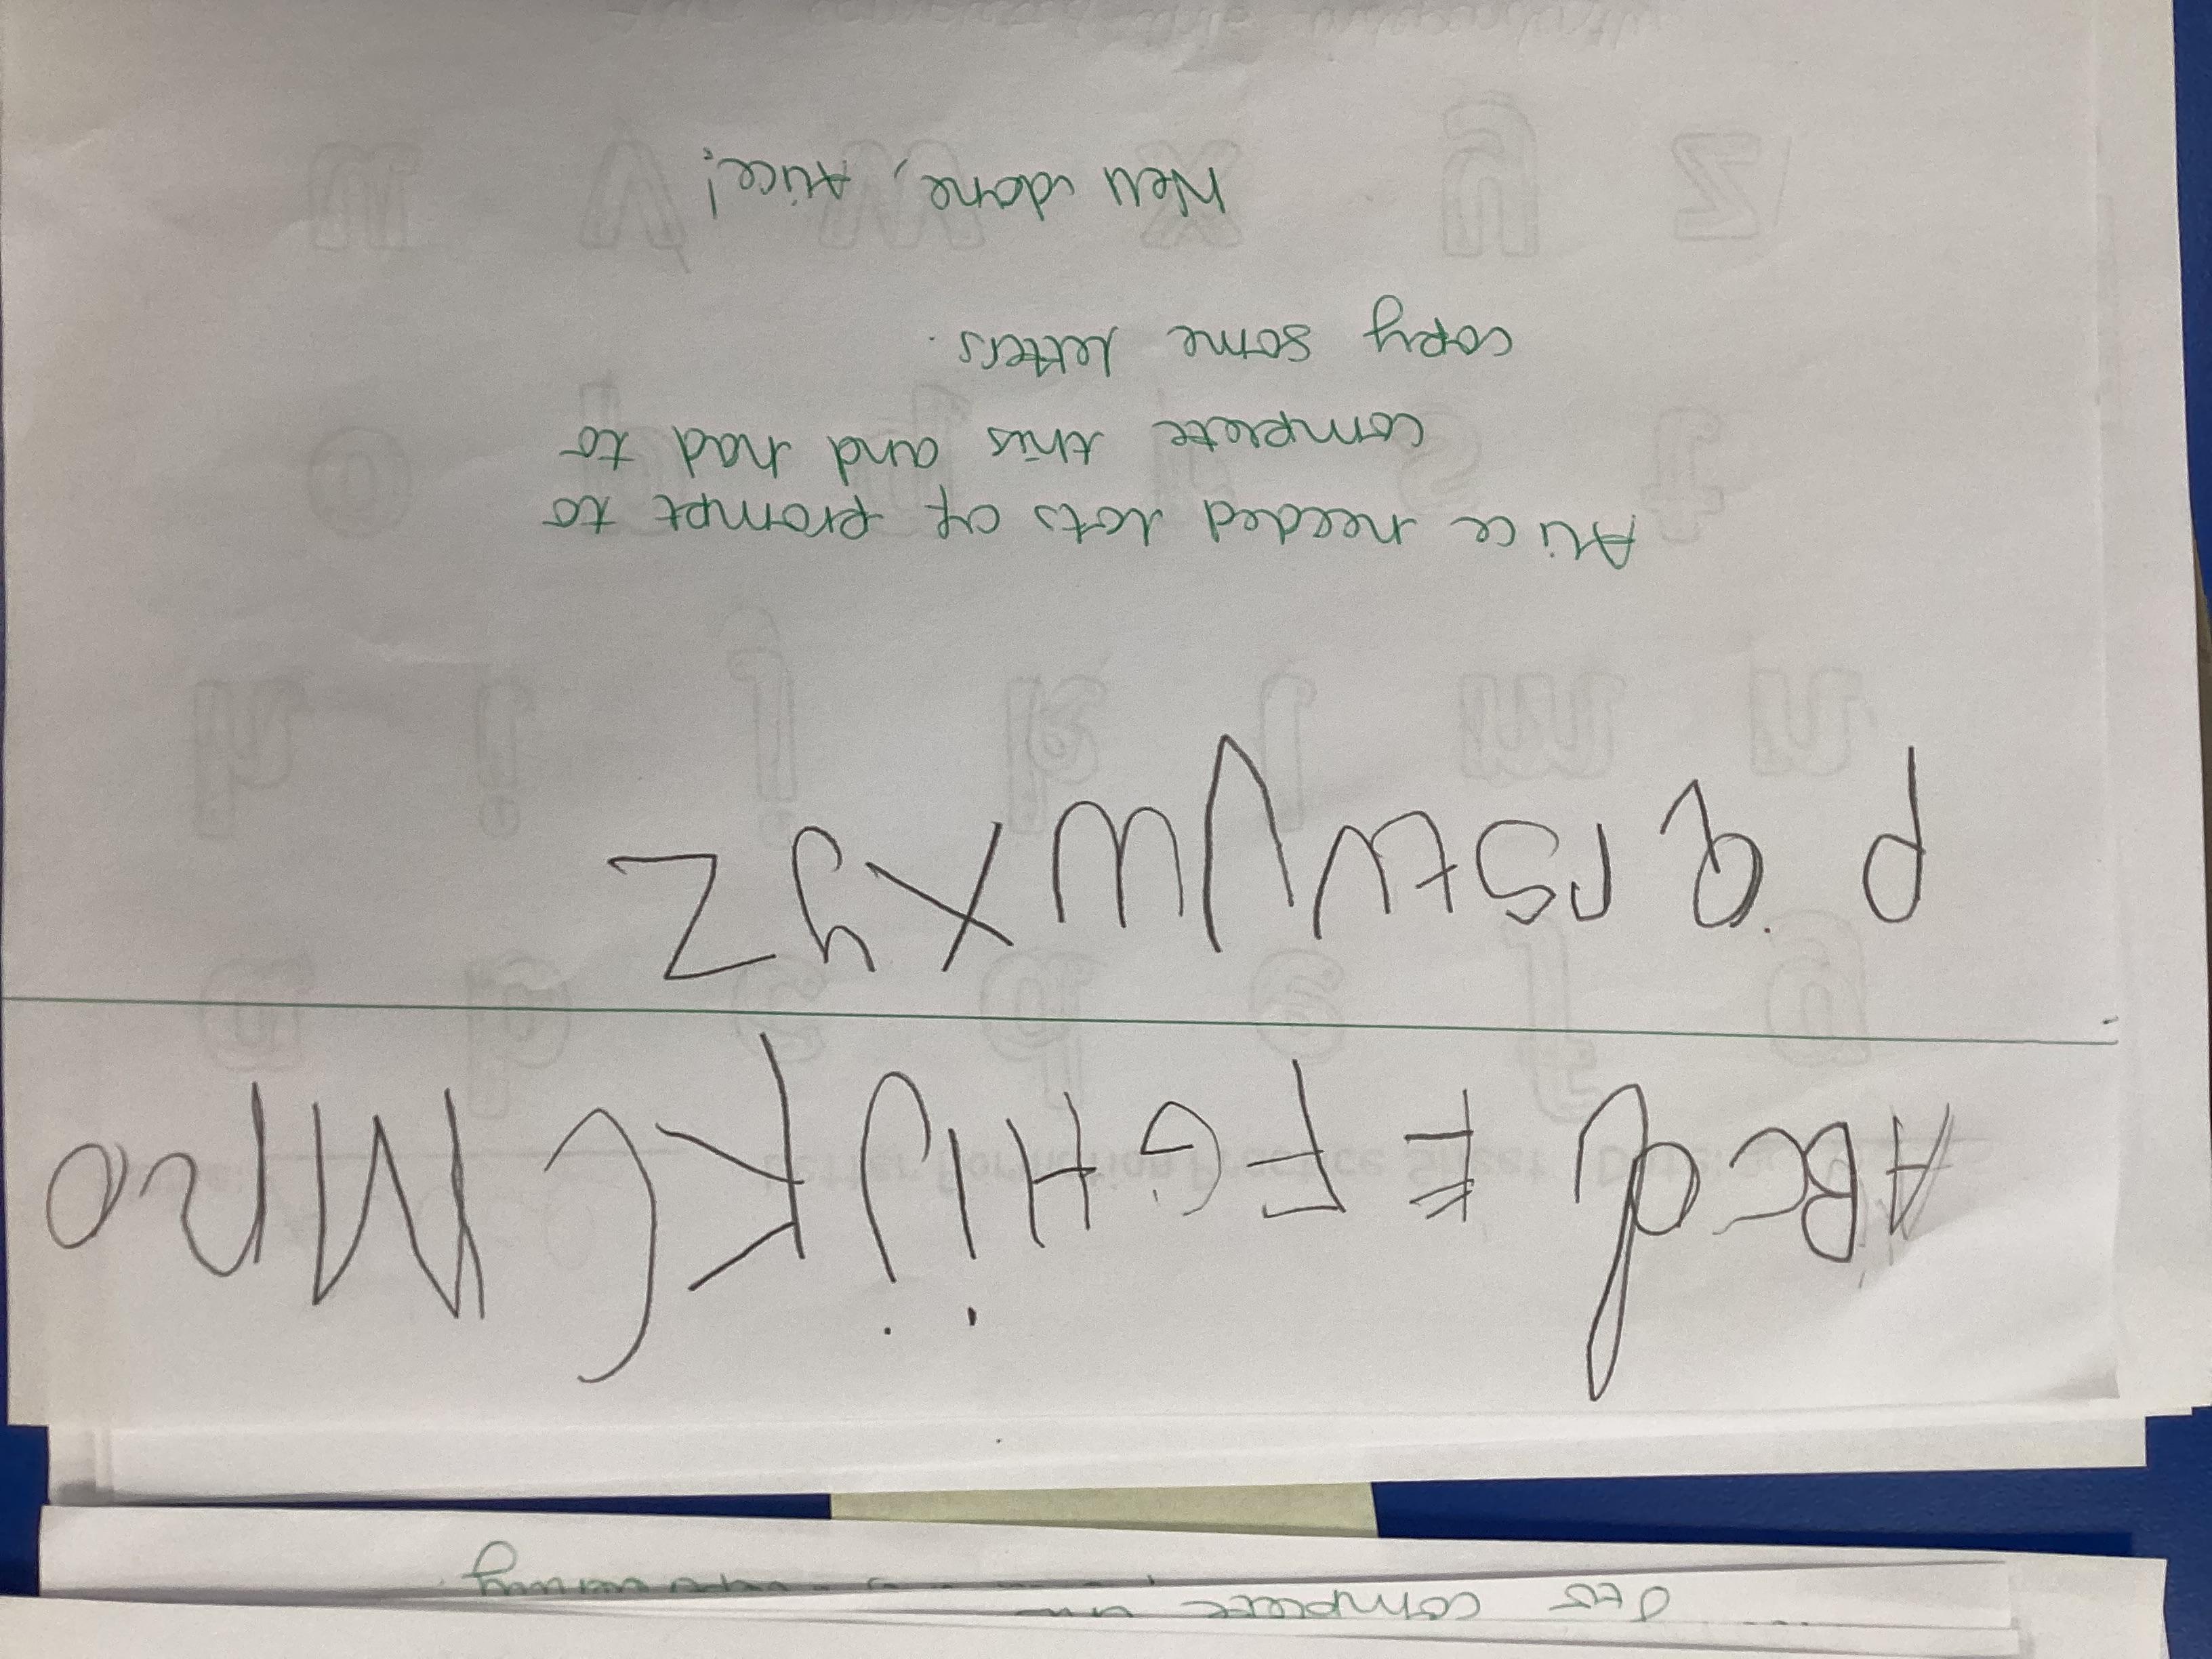 complete
ABCd EFGHijKLMno
p q rstuvwxyz
Alice needed lots of prompt to
complete this and had to
copy some letters.
Well done, Alice!